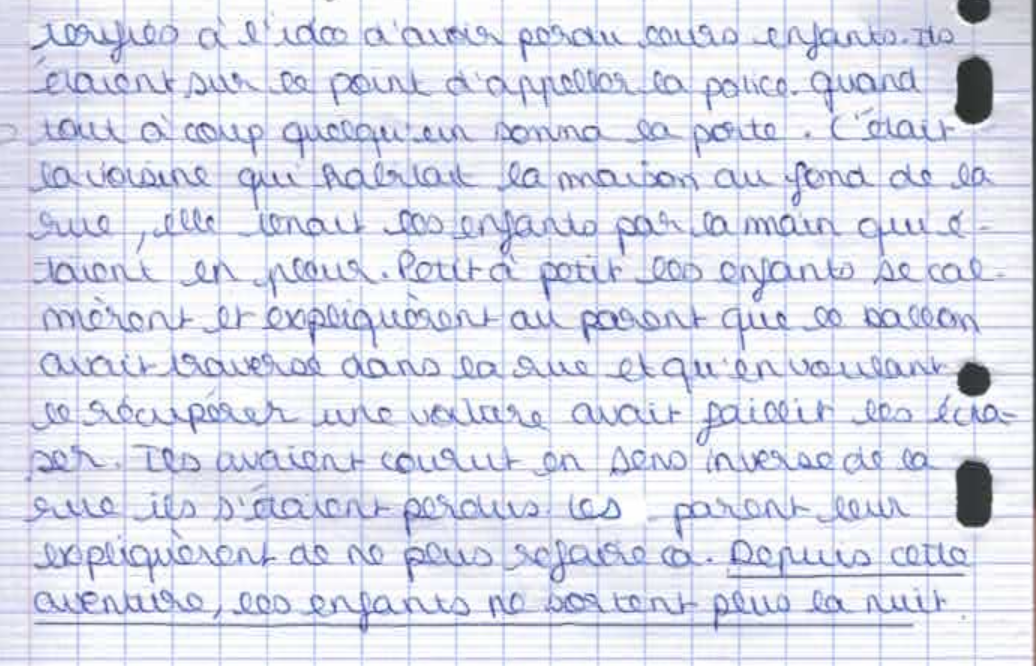 rorifiés à l'idée d'avoir perdu leurs enfants. Ils
étaient sur le point d'appeller la police. quand
tout à coup quelqu'un sonna la porte. C'était
la voisine qui habitait la maison au fond de la
rue, elle tenait les enfants par la main qui é-
taient en pleur. Petit à petit les enfants se cal-
mèrent et expliquèrent au parent que le ballon
avait traversé dans la rue et qu'en voulant
le récupérer une voiture avait faillit les écra-
ser. Ils avaient courut en sens inverse de la
rue ils s'étaient perdus. Les parent leur
expliquèrent de ne plus refaire ça. Depuis cette
aventure, les enfants ne sortent plus la nuit.